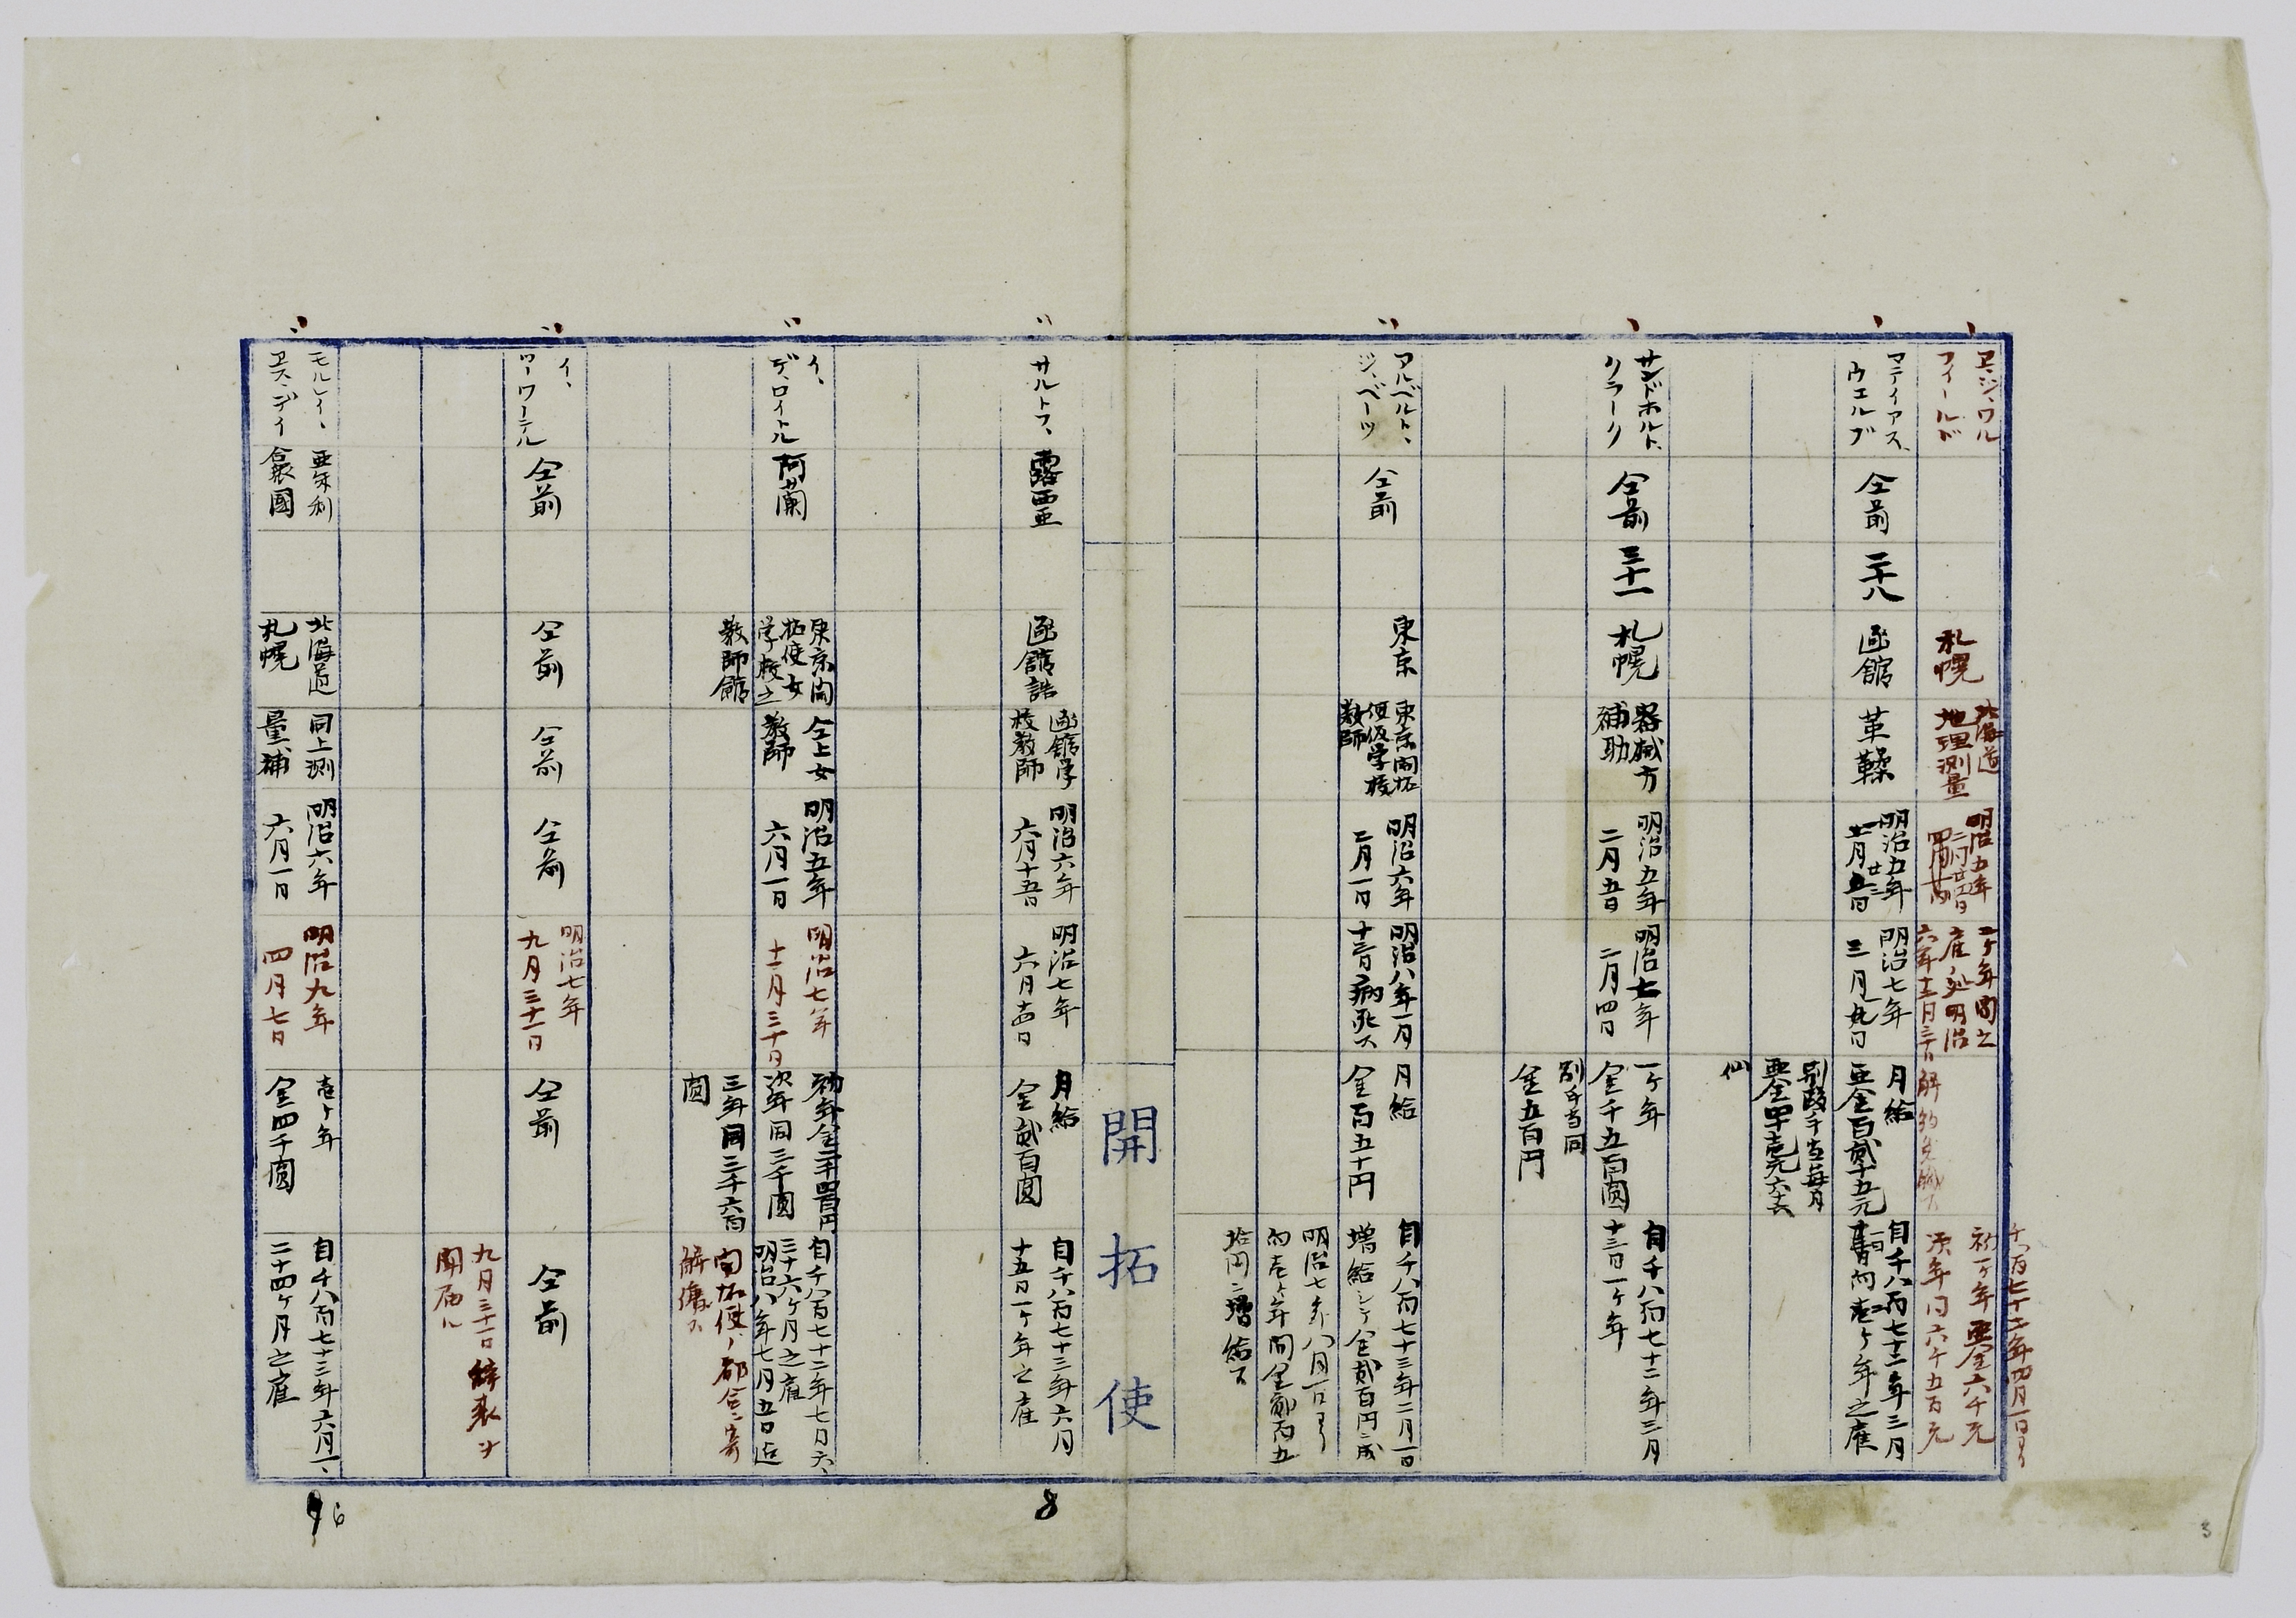 ヱ、ジ、ワル
フィールド
札幌
北海道
地理測量
明治五年
二ヶ年間之
六年十二月三十日
解約免職ス
千八百七十二年四月一日ヨリ
初一ヶ年亜金六千元
次年同六千五百元
マティアス、
ウエルブ
仝前
二十八
函館
革鞣
明治五年
明治七年
三月九日
月給
亜金百貳十五元
別段手当毎月
仙
自千八百七十二年三月
向壱ヶ年之雇
サンドホルト、
クラーク
仝前
三十一
札幌
器械方
補助
明治五年
二月五日
明治七年
二月四日
一ヶ年
金千五百圓
別手当同
金五百円
自千八百七十二年三月
十三日一ヶ年
アルベルト、
ジ、ベーツ
仝前
東京
東京開拓
使仮学校
教師
明治六年
二月一日
明治八年一月
十三日病死ス
月給
金百五十円
自千八百七十三年二月一日
増給シテ金貳百円ニ成
明治七年八月一日ヨリ
向壱ヶ年間金貳百五
拾円ニ増給ス
開拓使
サルトフ、
露西亜
函館詰
函館学
校教師
明治六年
六月十五日
明治七年
六月十四日
月給
金貳百圓
自千八百七十三年六月
十五日一ヶ年之雇
イ、
デ、ロイトル
阿蘭
東京開
拓使女
学校之
教師館
仝上女
教師
明治五年
六月一日
明治七年
十二月三十日
初年金二千四百円
次年同三千圓
三年同三千六百
圓
自千八百七十二年七月六、
三十六ヶ月之雇
明治八年七月五日迄
開拓使ノ都合ニ寄
解傭ス
イ、
ワーワーテル
仝前
仝前
仝前
仝前
明治七年
九月三十一日
仝前
仝前
九月三十一日辞表ヲ
聞届ル
モルレイ、
ヱス、デイ
亜米利
合衆國
北海道
札幌
同上測
量補
明治六年
六月一日
明治九年
四月七日
壱ヶ年
金四千圓
自千八百七十三年六月一、
二十四ヶ月之雇
8
6
3